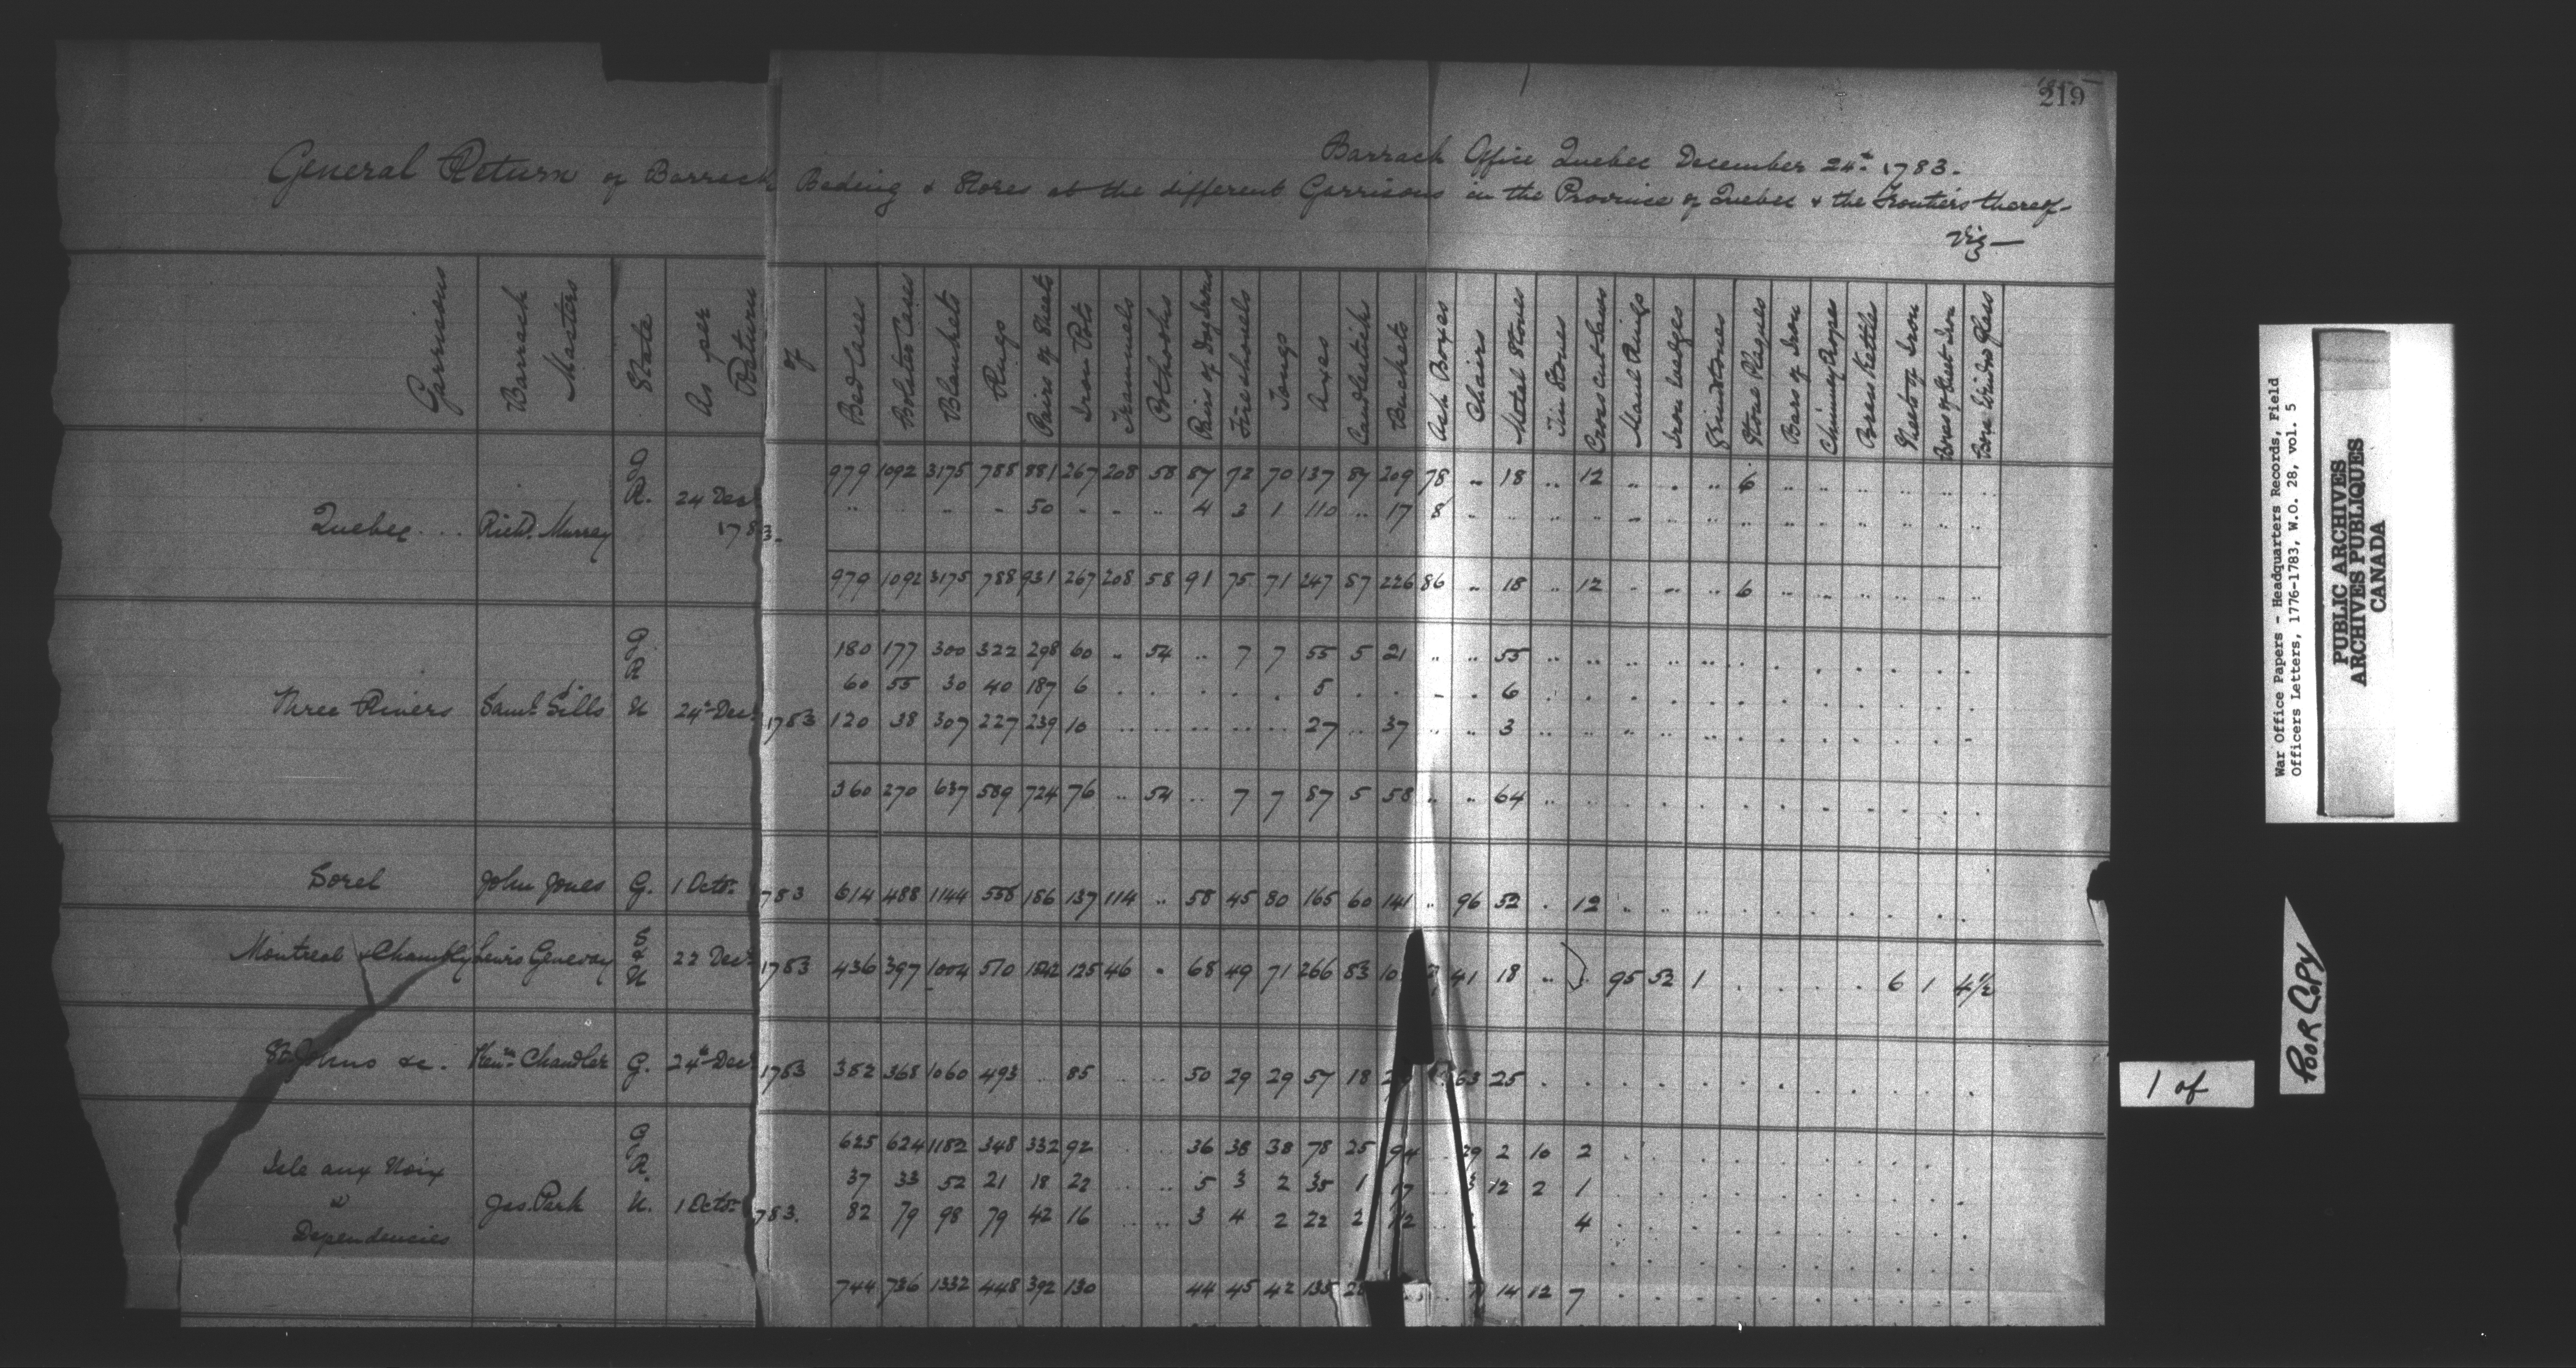 219
Barrack Office Quebec December 24th 1783.
General Return of Barrack Beding & Stores at the different Garrisons in the Province of Quebec & the Frontiers thereof
Viz
Garrisons | Barrack Masters | State | As per Return of | Bed Cases | Bolster Cases | Blankets | Rugs | Pairs of Sheets | Iron Pots | Trammels | Pothooks | Pairs of Dog Irons | Fire shovels | Tongs | Axes | Candlesticks | Buckets | Ash Boxes | Chairs | Metal Stoves | Tin Stoves | Cross Cut Saws | Maul Rings | Iron Wedges | Grindstones | Stone Plaques | Bars of Iron | Chimney Ropes | Brass Kettles | Sheets of Iron | Boxes of Sheet Iron | Boxes Window Glass
Quebec . . . Richd. Murray G 24 Decr 1783. 979 1092 3175 788 881 267 208 58 87 72 70 137 87 209 78 .. 18 .. 12 .. . .. 6 .. .. .. .. .. ..
R. .. .. - - 50 - - .. 4 3 1 110 .. 17 8
979 1092 3175 788 931 267 208 58 91 75 71 247 87 226 86 .. 18 .. 12 . .. .. 6
Three Rivers Saml. Sills G 180 177 300 322 298 60 .. 54 .. 7 7 55 5 21 .. .. 55
R 60 55 30 40 187 6 . . . . . 5 . . - . 6
U 24th Decr 1783 120 38 307 227 239 10 .. .. .. .. .. 27 .. 37 .. .. 3
360 270 637 589 724 76 .. 54 .. 7 7 87 5 58 .. .. 64
Sorel John Jones G. 1 Octr. 1783 614 488 1144 558 186 137 114 .. 58 45 80 165 60 141 .. 96 52 . 12
Montreal & Chambly Lewis Genevay S & U 22 Decr 1783 436 397 1004 510 1842 125 46 . 68 49 71 266 53 41 18 .. 95 52 1 . . . . . 6 1 4 1/2
St Johns &c. Kenn. Chandler G. 24th Decr 1783 352 368 1060 493 .. 85 .. .. 50 29 29 57 18 63 25
Isle aux Noix & Dependencies Jas. Park G 625 624 1182 348 332 92 36 38 38 78 25 94 29 2 10 2
R. 37 33 52 21 18 22 .. .. 5 3 2 35 1 17 3 12 2 1
U. 1 Octr. 1783. 82 79 98 79 42 16 .. .. 3 4 2 22 2 12 4
744 736 1332 448 392 130 44 45 42 135 28 14 12 7
War Office Papers - Headquarters Records, Field
Officers Letters, 1776-1783, W.O. 28, vol. 5
PUBLIC ARCHIVES
ARCHIVES PUBLIQUES
CANADA
POOR COPY
1 of